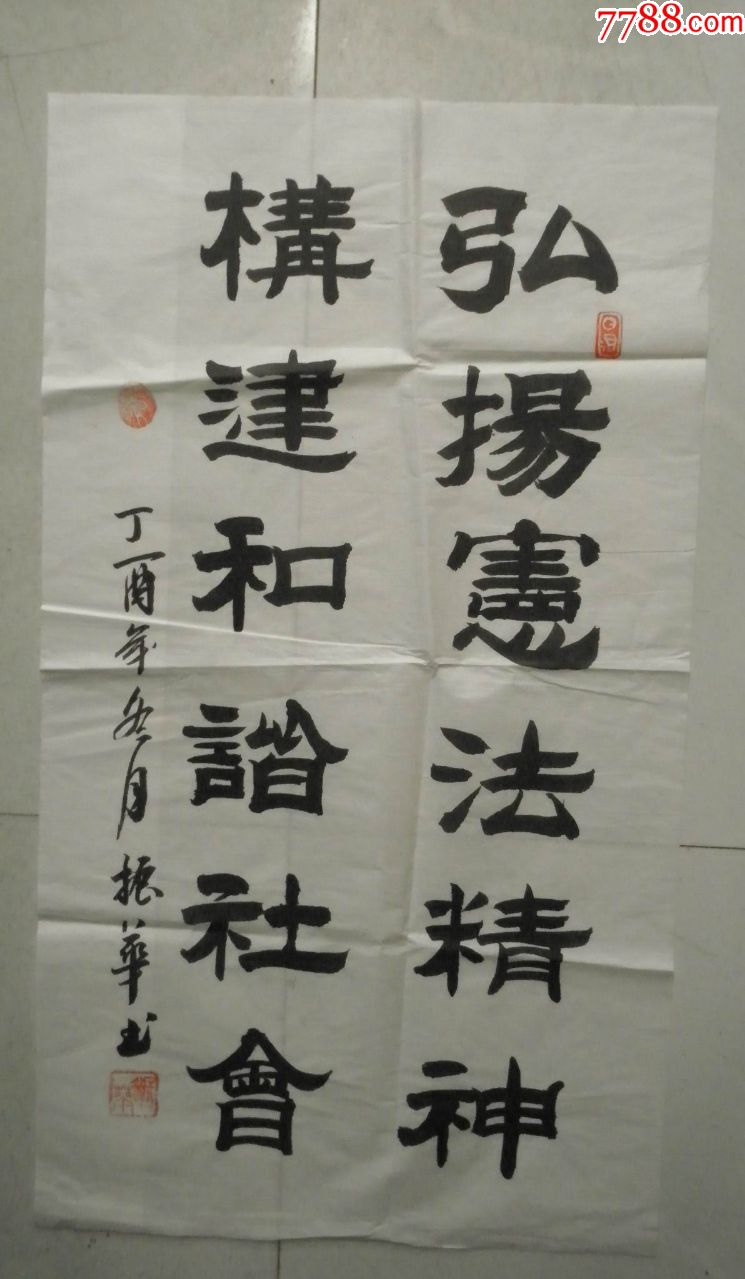 7788.com
弘揚憲法精神
構建和諧社會
丁酉年冬月振華书